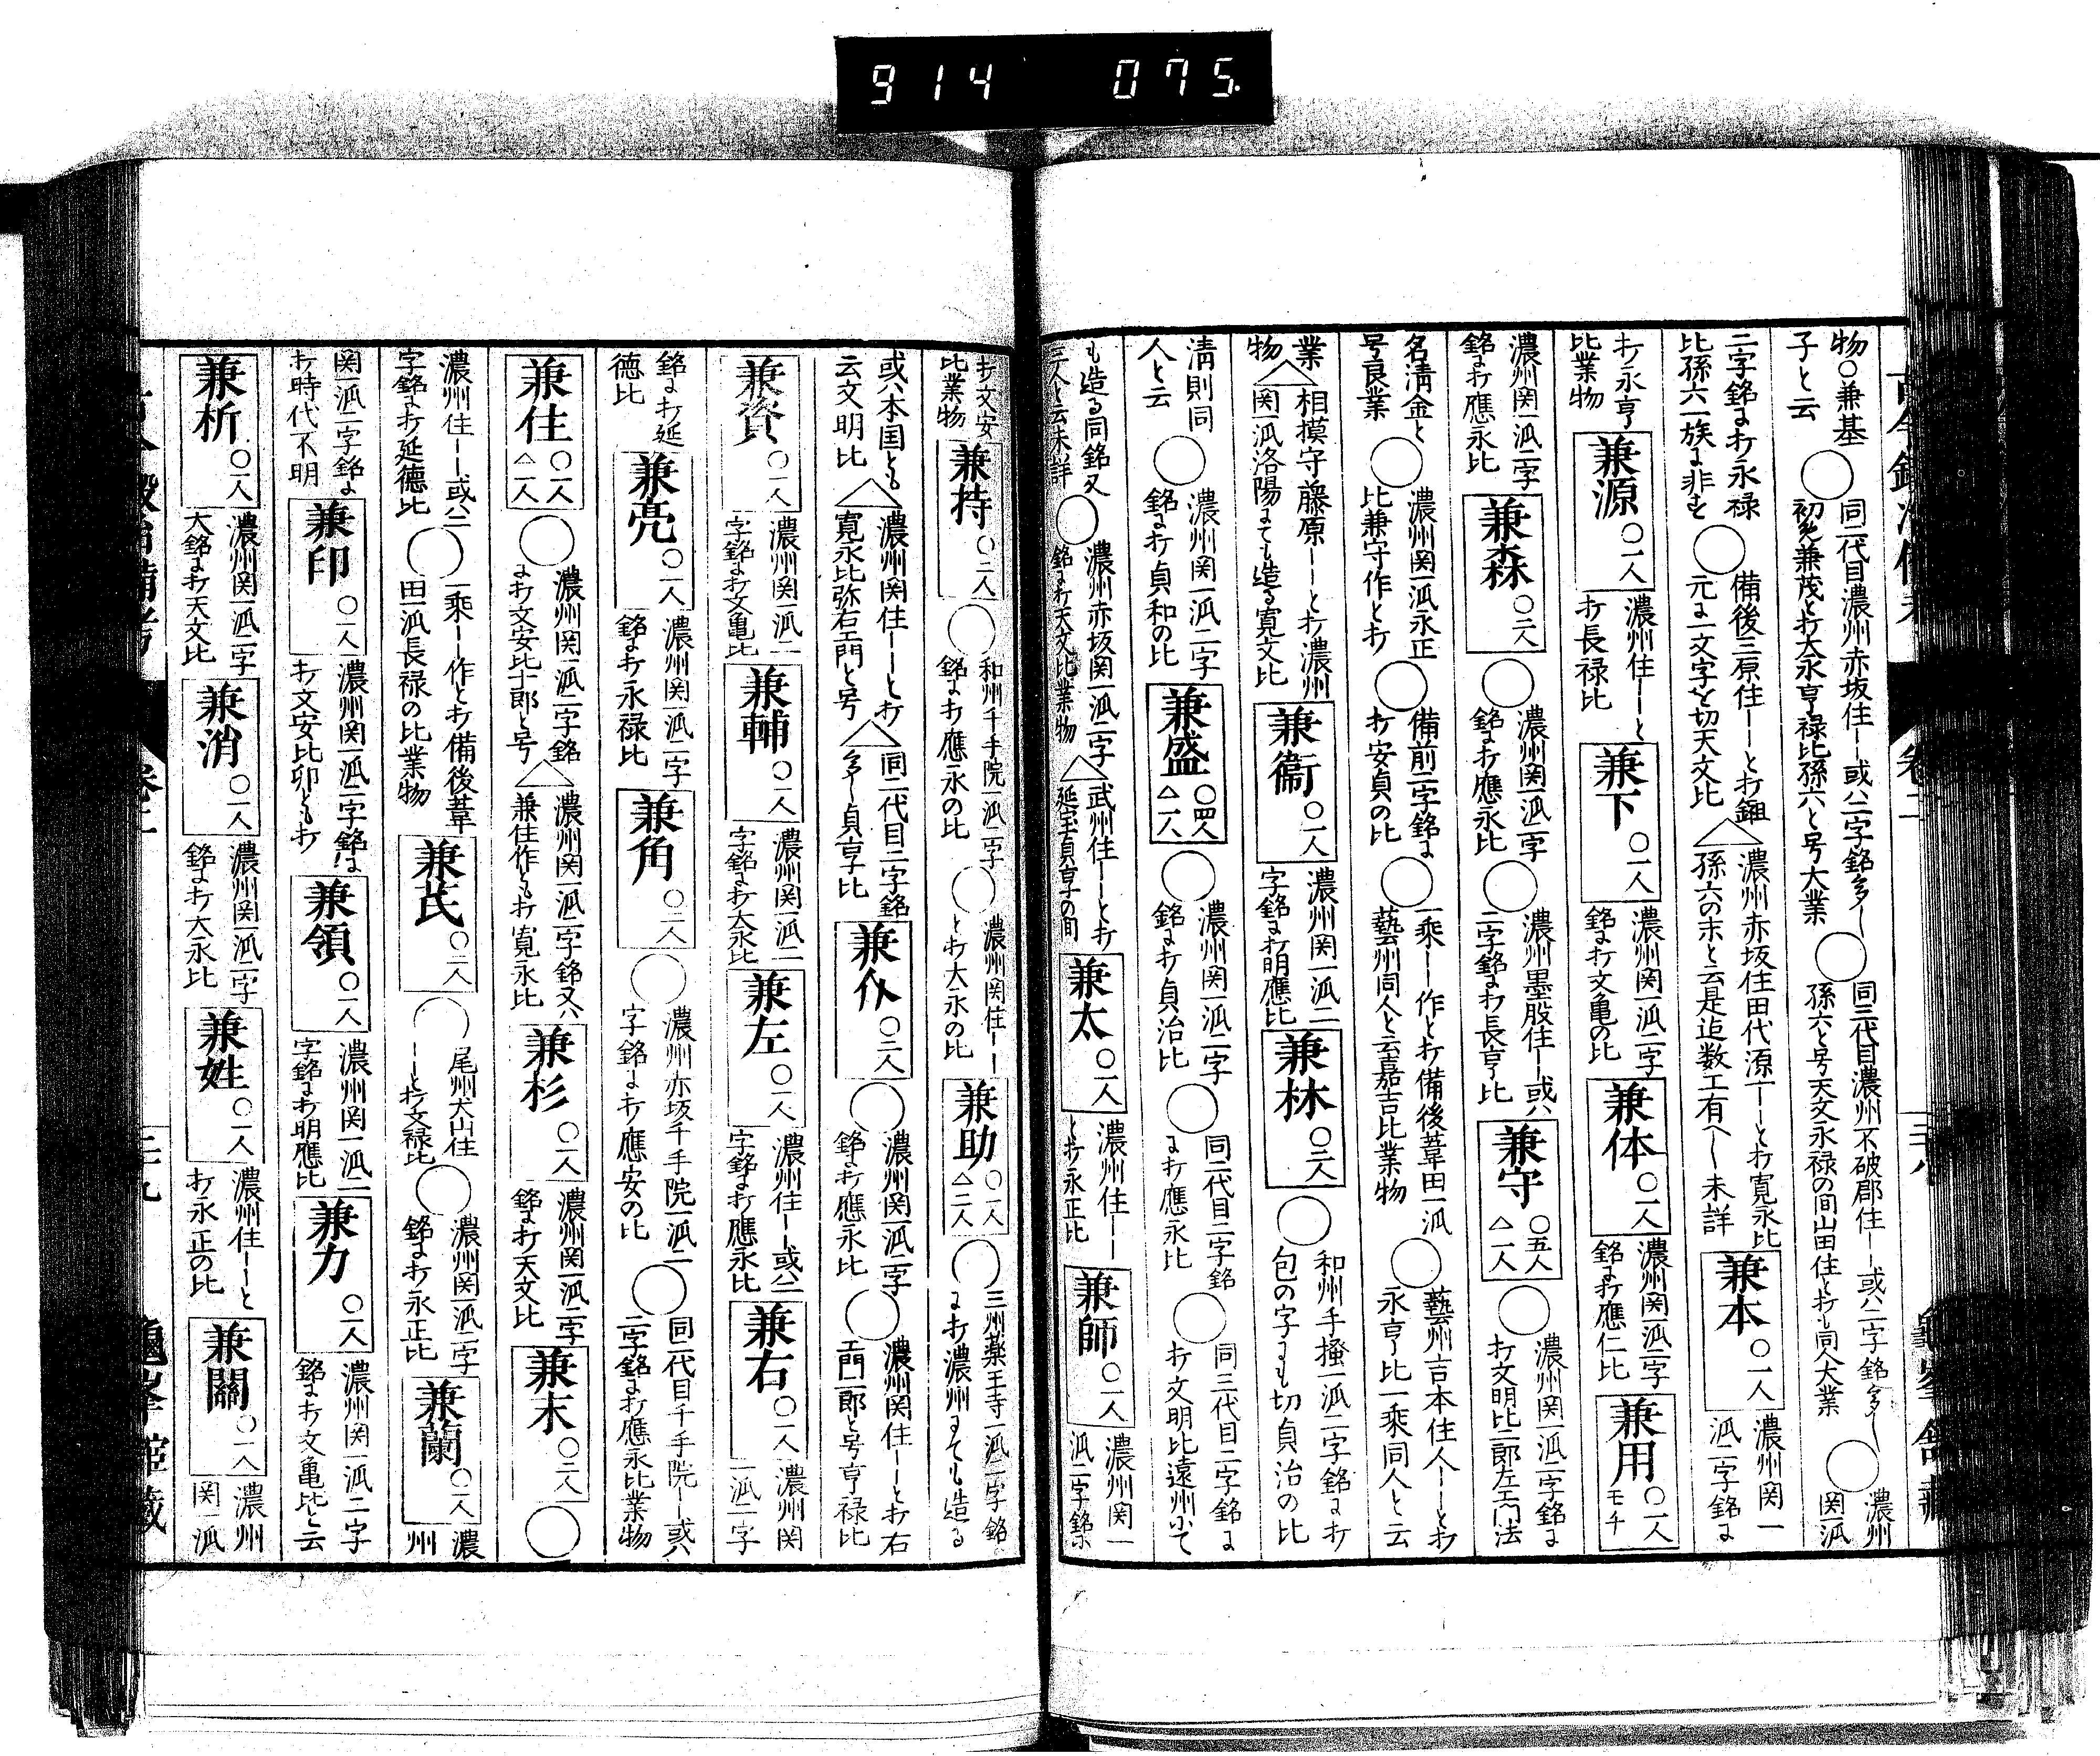 914 075.
物○兼基
子と云
○同二代目濃州赤坂住――或ハ二字銘多し
初兼茂と打大永亨禄比孫六と号大業
○同三代目濃州不破郡住――或ハ二字銘多し
孫六と号天文永禄の間山田住とも打同人大業
○濃州
関一派
二字銘に打永禄
比孫六一族に非す
○備後三原住――と打
元に一文字を切天文比
△濃州赤坂住田代源一――と打寛永比
孫六の末と云是迄数工有へし未詳
兼本 ○一人
濃州関一
派二字銘に
打永亨
比業物
兼源 ○一人
濃州住――と
打長禄比
兼下 ○一人
濃州関一派二字
銘に打文亀の比
兼体 ○一人
濃州関一派二字
銘に打應仁比
兼用 ○一人 モチ
濃州関一派二字
銘に打應永比
兼森 ○二人
○濃州関一派二字
銘に打應永比
○濃州墨股住――或ハ
二字銘に打長亨比
兼守 ○五人 △一人
○濃州関一派二字銘に
打文明比二郎左エ門法
名清金と
号良業
○濃州関一派永正
比兼守作と打
○備前二字銘に
打安貞の比
○一乘――作と打備後葦田一派
藝州同人と云嘉吉比業物
○藝州吉本住人――と打
永亨比一乘同人と云
業
物
△相摸守藤原――と打濃州
関一派洛陽にても造る寛文比
兼衞 ○一人
濃州関一派二
字銘に打明應比
兼林 ○三人
○和州手掻一派二字銘に打
包の字にも切貞治の比
清則同
人と云
○濃州関一派二字
銘に打貞和の比
兼盛 ○四人 △一人
○濃州関一派二字
銘に打貞治比
○同二代目二字銘
に打應永比
○同三代目二字銘に
打文明比遠州にて
も造る同銘又
三人と云未詳
○濃州赤坂関一派二字
銘に打天文比業物
△武州住――と打
延宝貞享の間
兼太 ○一人
濃州住――
と打永正比
兼師 ○一人
濃州関一
派二字銘に
打文安
比業物
兼持 ○二人
○和州千手院一派二字
銘に打應永の比
○濃州関住――
と打大永の比
兼助 ○一人 △二人
○三州薬王寺一派二字銘
に打濃州にても造る
或ハ本国とも
云文明比
△濃州関住――と打
寛永比弥右エ門と号
△同二代目二字銘
多し貞享比
兼㐺 ○二人
○濃州関一派二字
銘に打應永比
○濃州関住――と打右
エ門一郎と号亨禄比
兼資 ○一人
濃州関一派二
字銘に打文亀比
兼輔 ○一人
濃州関一派二
字銘に打大永比
兼左 ○一人
濃州住――或ハ二
字銘に打應永比
兼右 ○一人
濃州関
一派二字
銘に打延
徳比
兼亮 ○一人
濃州関一派二字
銘に打永禄比
兼角 ○二人
○濃州赤坂千手院一派二
字銘に打應安の比
○同二代目千手院――或ハ
二字銘に打應永比業物
兼住 ○一人 △一人
○濃州関一派二字銘
に打文安比十郎と号
△濃州関一派二字銘又ハ
兼住作とも打寛永比
兼杉 ○一人
濃州関一派二字
銘に打天文比
兼末 ○二人
○
濃州住――或ハ二
字銘に打延徳比
○一乘――作と打備後葦
田一派長禄の比業物
兼氏 ○二人
○尾州犬山住
――と打文禄比
○濃州関一派二字
銘に打永正比
兼蘭 ○一人
濃
州
関一派二字銘に
打時代不明
兼印 ○一人
濃州関一派二字銘に
打文安比卯とも打
兼領 ○一人
濃州関一派二
字銘に打明應比
兼力 ○一人
濃州関一派二字
銘に打文亀比と云
兼析 ○一人
濃州関一派二字
大銘に打天文比
兼消 ○一人
濃州関一派二字
銘に打大永比
兼姓 ○一人
濃州住――と
打永正の比
兼關 ○一人
濃州
関一派